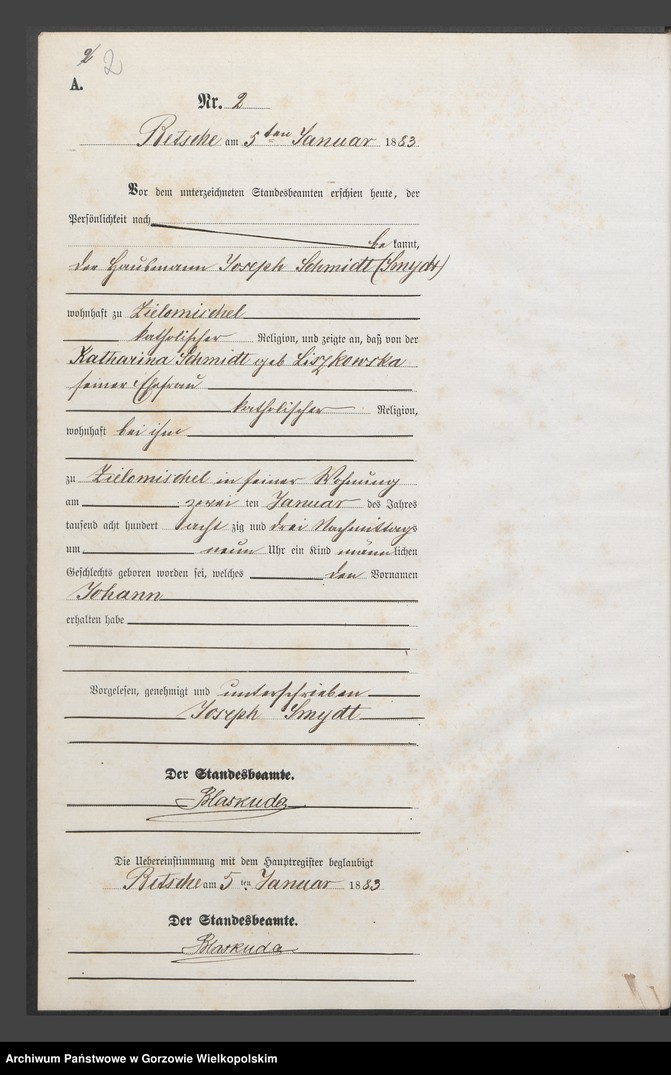 2 2
A.
Nr. 2
Betsche am 5ten Januar 1883
Vor dem unterzeichneten Standesbeamten erschien heute, der
Persönlichkeit nach
be kannt,
der Hausmann Joseph Schmidt (Smydt)
wohnhaft zu Zielomischel
katholischer Religion, und zeigte an, daß von der
Katharina Schmidt geb Liszkowska
seiner Ehefrau
katholischer Religion,
wohnhaft bei ihm
zu Zielomischel in seiner Wohnung
am zwei ten Januar des Jahres
tausend acht hundert acht zig und drei Nachmittags
um neun Uhr ein Kind männlichen
Geschlechts geboren worden sei, welches den Vornamen
Johann
erhalten habe
Vorgelesen, genehmigt und unterschrieben
Joseph Smydt
Der Standesbeamte.
Blaskuda
Die Uebereinstimmung mit dem Hauptregister beglaubigt
Betsche am 5 ten Januar 1883
Der Standesbeamte.
Blaskuda
Archiwum Państwowe w Gorzowie Wielkopolskim